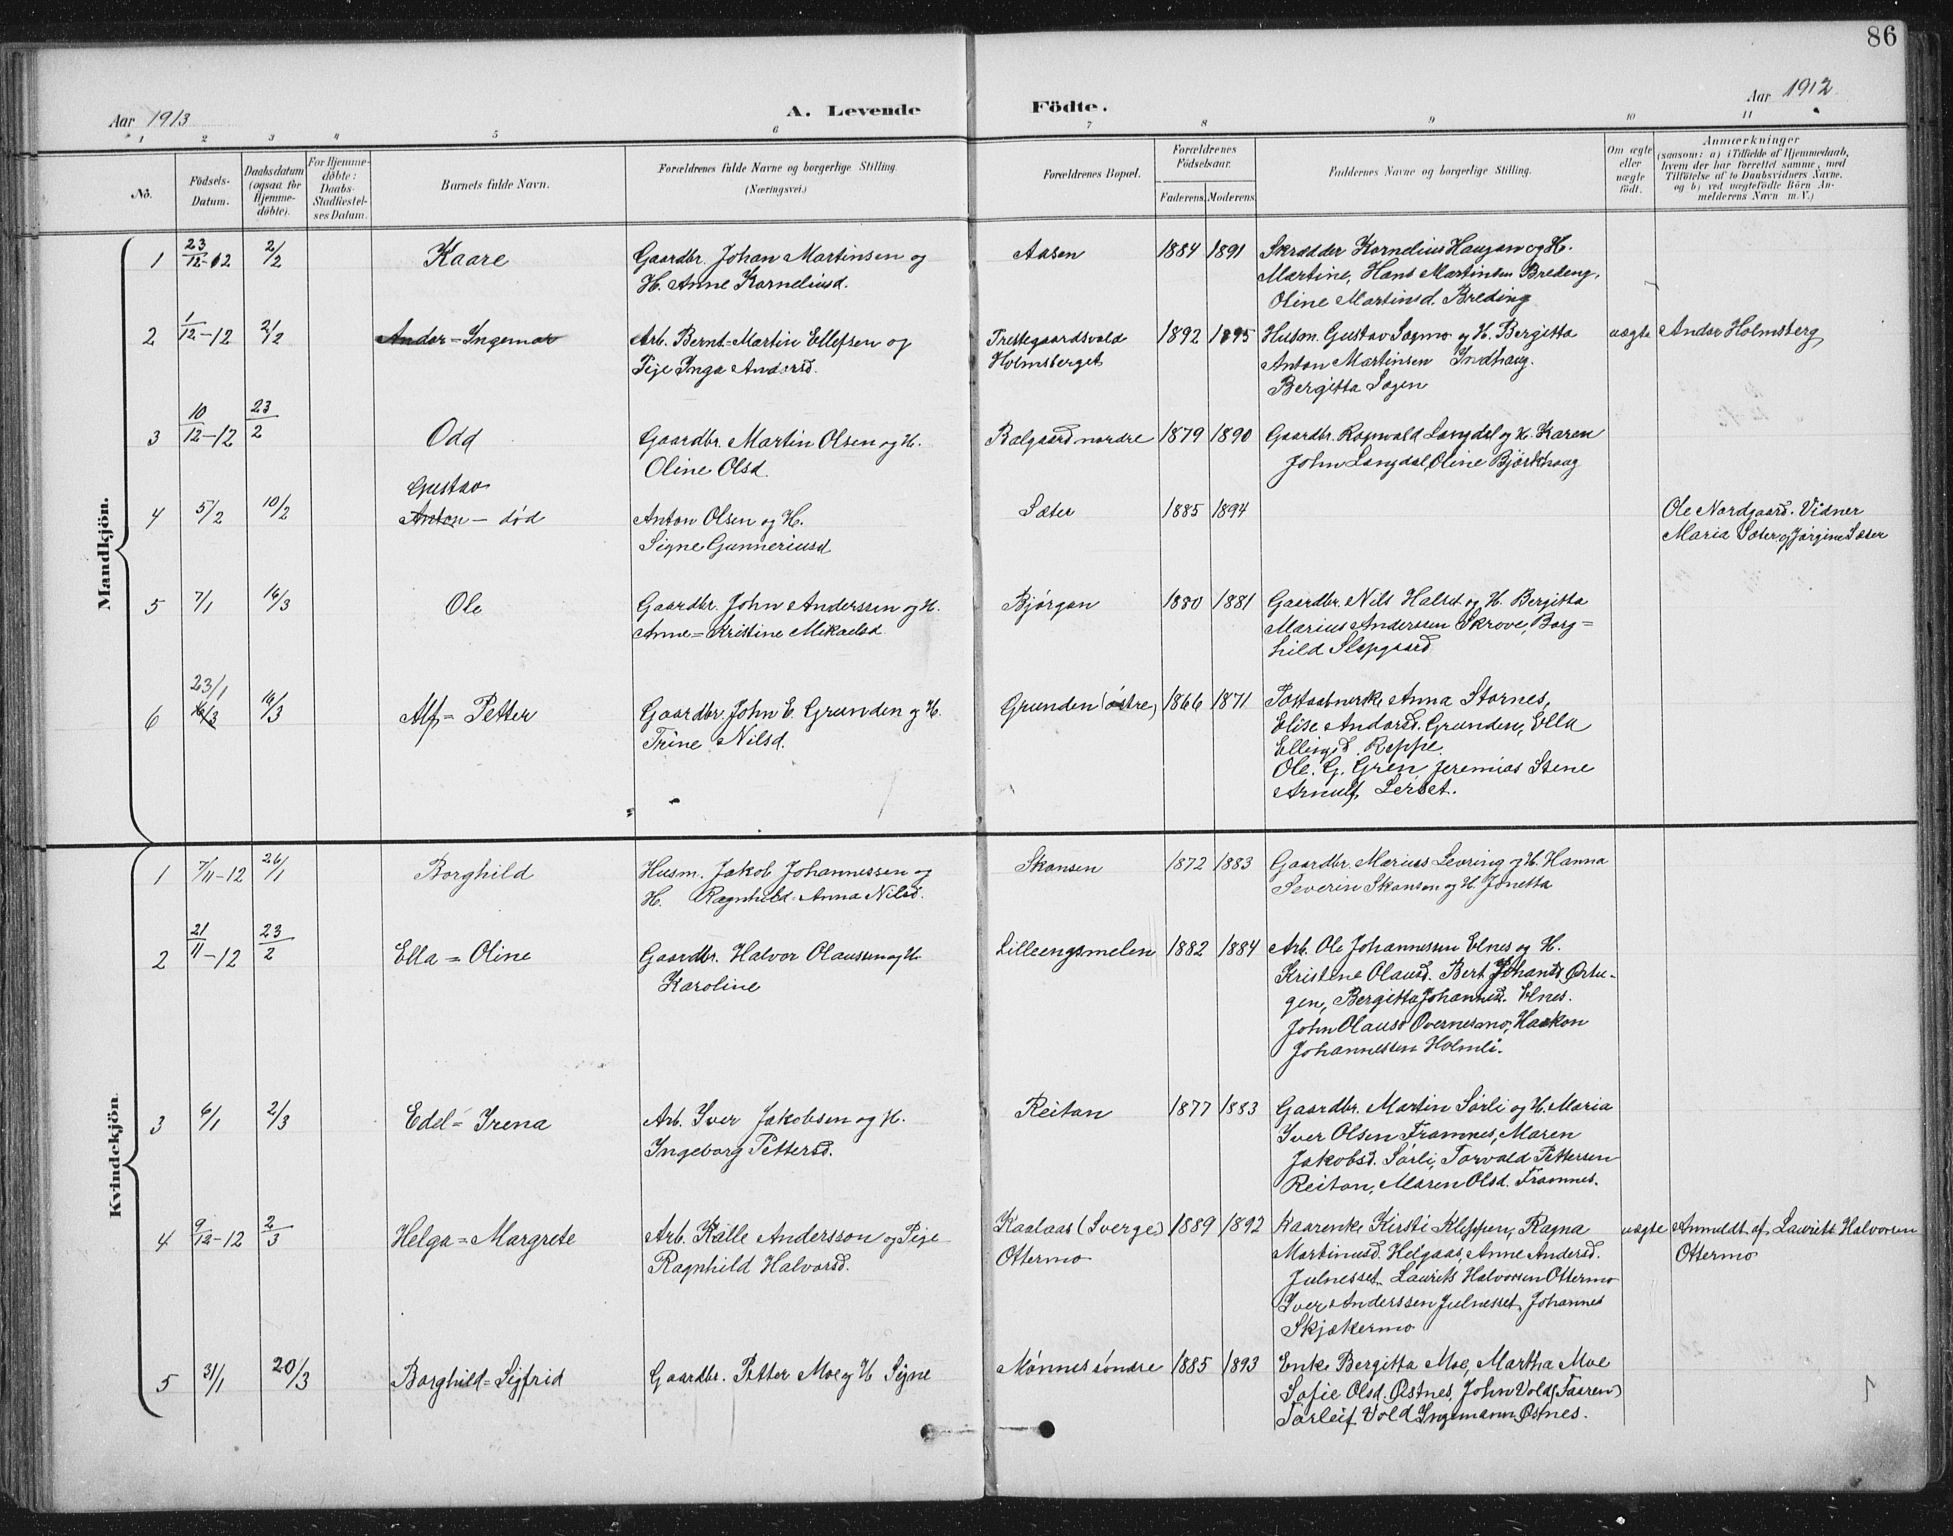 86
Aar 1913
A. Levende
Födte.
Aar 1912
1 2 3 4 5 6 7 8 9 10 11
No.
Födsels-
Datum.
Daabsdatum
(ogsaa for
Hjemme-
döbte).
For Hjemme-
döbte:
Daabs-
Stadfæstel-
ses Datum.
Barnets fulde Navn.
Forældrenes fulde Navne og borgerlige Stilling.
(Næringsvei.)
Forældrenes Bopæl.
Forældrenes
Födselsaar.
Faderens. Moderens.
Faddernes Navne og borgerlige Stilling.
Om ægte
eller
uægte
født.
Anmærkninger
(saasom: a) i Tilfælde af Hjemmedaab,
hvem der har forrettet samme, med
Tilföielse af to Daabsvidners Navne.
og b) ved uægtefödte Börn An-
melderens Navn m. V.)
Mandkjön.
1 23/12-12 2/2 Kaare Gaardbr. Johan Martinsen og Aasen 1884 1891 Skrædder Kornelius Haugan og H.
H. Anne Korneliusd. Martine, Hans Martinsen Bredeng,
Oline Martinsd. Breding
2 1/12-12 2/2 Andor=Ingemar Arb. Bernt=Martin Ellefsen og Prestegaardsvald 1892 1895 Husm. Gustav Sagmo og H. Bergitta uægte Andor Holmsberg
Pige Inga Andersd. Holmsberget Anton Martinsen Indhaug.
Bergitta Sagen
3 10/12-12 23/2 Odd Gaardbr. Martin Olsen og H. Balgaard nordre 1879 1890 Gaardbr. Ragnvald Langdal og H. Karen
Oline Olsd. John Langdal, Oline Bjørkhaug
Gustav
4 5/2 10/2 Anton - død Anton Olsen og H. Sæter 1885 1894 Ole Nordgaard. Vidner
Signe Gunneriusd Maria Sæter og Jørgine Sæter
5 7/1 16/3 Ole Gaardbr. John Anderssen og H. Bjørgan 1880 1881 Gaardbr. Nils Halset og H. Bergitta
Anne=Kristine Mikaelsd Marius Anderssen Skrove, Borg=
hild Slapgaard
23/1
6 16/3 16/3 Alf=Petter Gaardbr. John E. Grunden og H. Grunden (østre) 1866 1871 Postaabnerske Anna Stornes,
Trine Nilsd. Elise Andorsd. Grunden, Ella
Ellingsd. Reppe.
Ole. G. Gren, Jeremias Stene
Arnulf Lerset.
Kvindekjön.
1 7/11-12 26/1 Borghild Husm. Jakob Johannessen og Skansen 1872 1883 Gaardbr. Marius Levring og H. Hanna
H. Ragnhild=Anna Nilsd. Severin Skansen og H. Jonetta
2 21/11-12 23/2 Ella=Oline Gaardbr. Halvor Olaussen og H. Lilleengsmelen 1882 1884 Arb. Ole Johannessen Elnes og H.
Karoline Kristine Olausd. Bert Johansd Ørtu-
gen, Bergitta Johannesd. Elnes.
John Olauss Overnesmo, Haakon
Johannessen Holmli.
3 6/1 2/3 Edel=Irena Arb. Iver Jakobsen og H. Reitan 1877 1883 Gaardbr. Martin Sørli og H. Maria
Ingeborg Pettersd. Iver Olsen Framnes, Maren
Jakobsd. Sørli, Torvald Pettersen
Reitan, Maren Olsd. Framnes.
4 9/12-12 2/3 Helga=Margrete Arb. Kalle Andersson og Pige Kaalaas (Sverge) 1889 1892 Kaarenke Kirsti Kleppen, Ragna uægte Anmeldt af Laurits Halvorsen
Ragnhild Halvorsd. Ottermo Martinusd. Helgaas, Anne Andersd. Ottermo
Julnesset. Laurits Halvorsen Ottermo
Iver Anderssen Julnesset, Johannes
Skjækermo
5 31/1 20/3 Borghild=Sigfrid Gaardbr. Petter Moe og H Signe Mønnes søndre 1885 1893 Enke Bergitta Moe, Martha Moe
Sofie Olsd. Østnes, John Vold (Faaren)
Torleif Vold Ingemann Østnes.